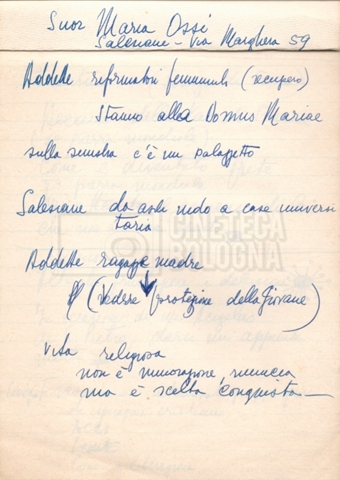 Suor Maria Ossi
Salesiane - Via Marghera 59
Addette riformatori femminili (recupero)
Stanno alla Domus Mariae
sulla sinistra c'è un palazzetto
Salesiane da asilo nido a case universi
taria
Addette ragazze madre
(Vedere protezione della Giovane)
Vita religiosa
non è rinuncia
ma è scelta, conquista
CINETECA
BOLOGNA